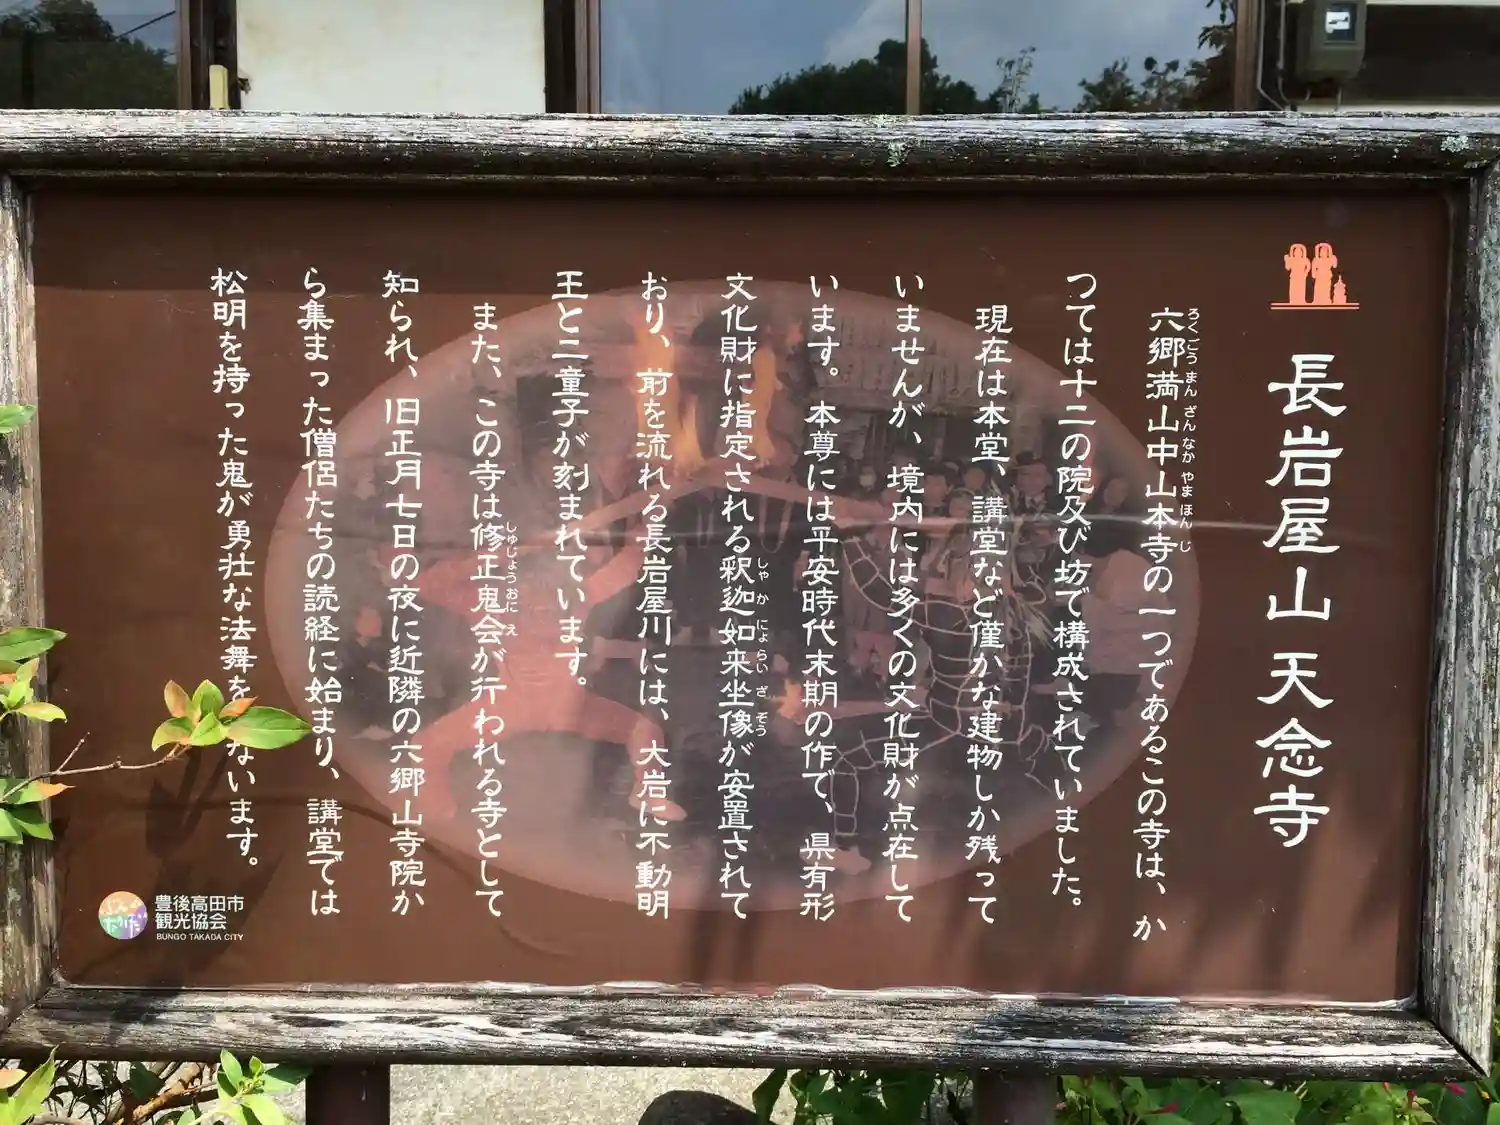 長岩屋山 天念寺
六郷満山中山本寺の一つであるこの寺は、か
ろくごう まんざん なかやま ほんじ
つては十二の院及び坊で構成されていました。
現在は本堂、講堂など僅かな建物しか残って
いませんが、境内には多くの文化財が点在して
います。本尊には平安時代末期の作で、県有形
文化財に指定される釈迦如来坐像が安置されて
しゃか にょらい ざぞう
おり、前を流れる長岩屋川には、大岩に不動明
王と二童子が刻まれています。
また、この寺は修正鬼会が行われる寺として
しゅじょう おに え
知られ、旧正月七日の夜に近隣の六郷山寺院か
ら集まった僧侶たちの読経に始まり、講堂では
松明を持った鬼が勇壮な法舞を ないます。
豊後高田市
観光協会
BUNGO TAKADA CITY